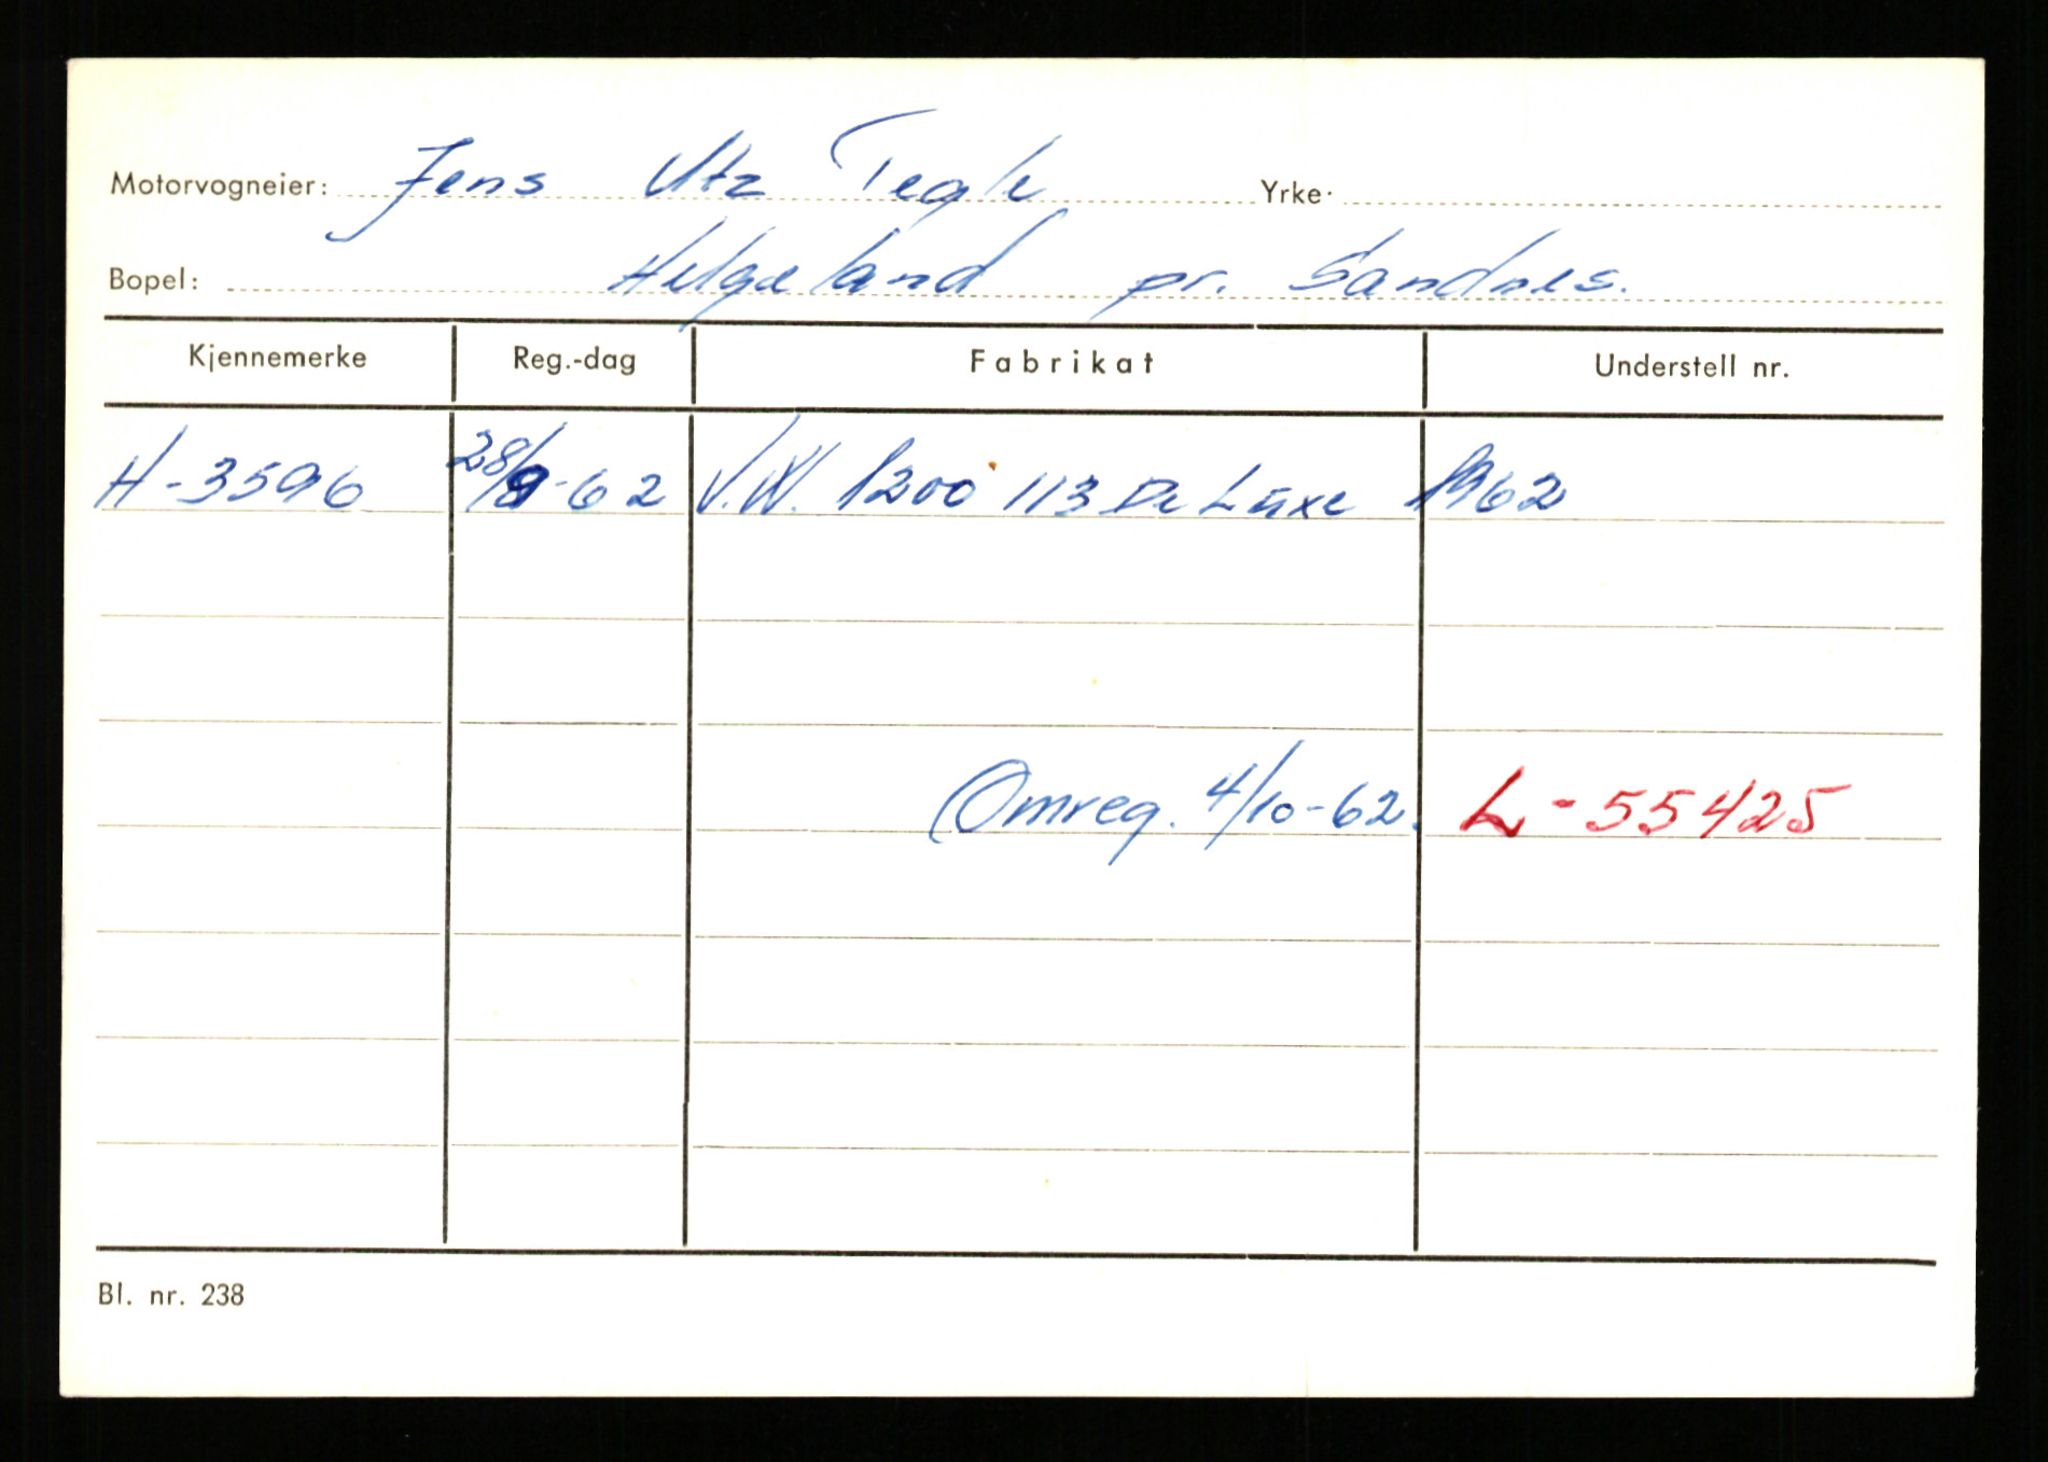 Motorvogneier: Jens Utz Tegle Yrke.
Bopel: Helgeland pr. Sandnes.
Kjennemerke Reg.-dag Fabrikat Understell nr.
H-3596 28/9-62 V.W. 1200 113 De Luxe 1962
(Omreg. 4/10-62. L-55425
Bl. nr. 238